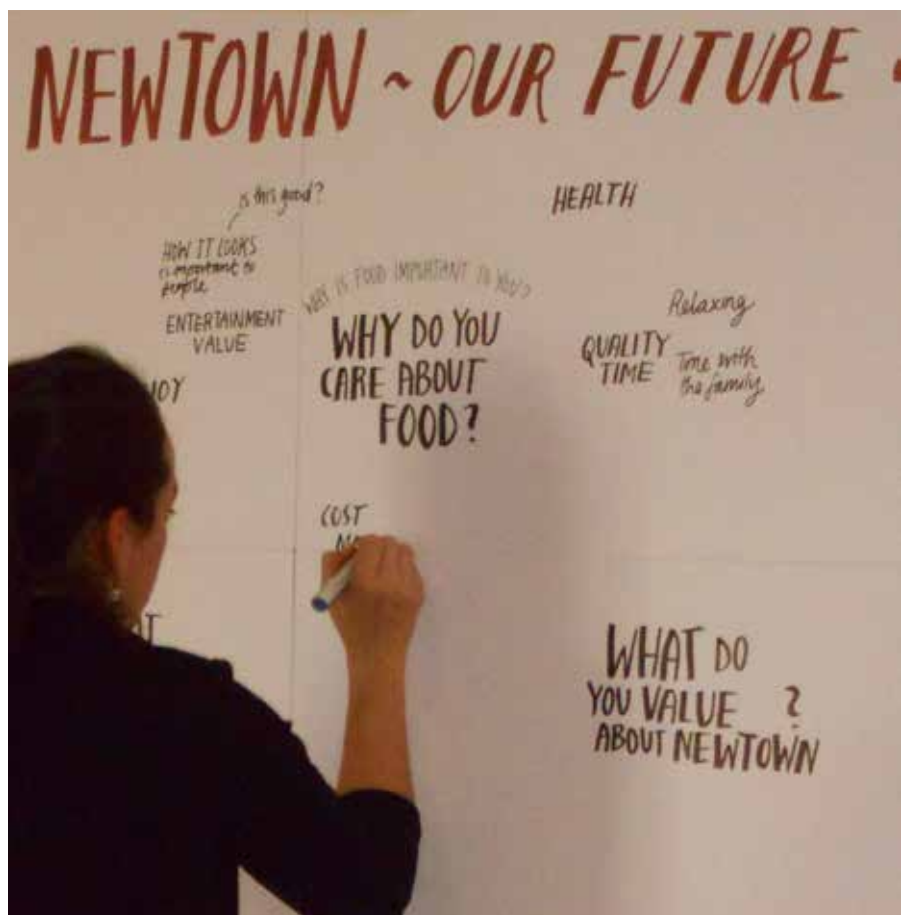 NEWTOWN ~ OUR FUTURE
is this good?
HOW IT LOOKS
is important to
people
ENTERTAINMENT
VALUE
OY
HEALTH
WHY IS FOOD IMPORTANT TO YOU?
WHY DO YOU
CARE ABOUT
FOOD?
Relaxing
QUALITY
TIME
Time with
the family
COST
WHAT DO
YOU VALUE ?
ABOUT NEWTOWN